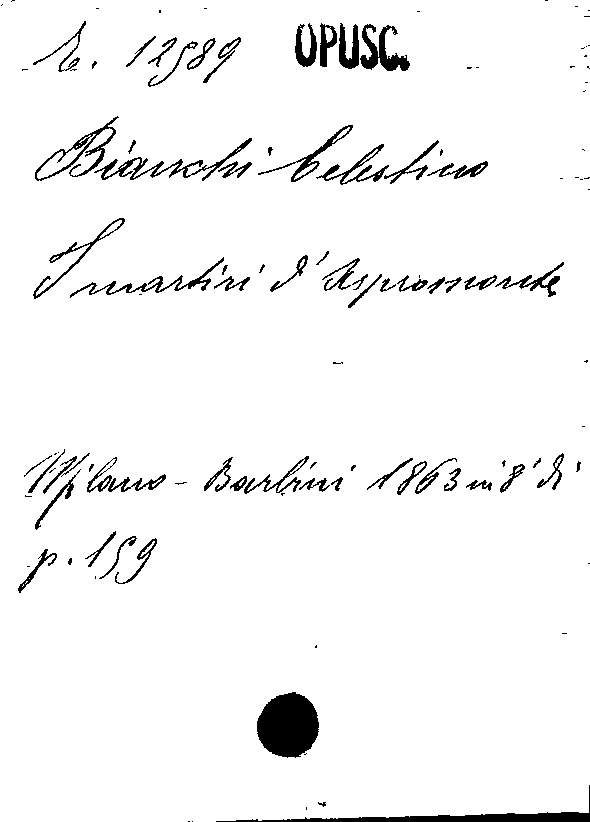 E. 12589 OPUSC.
Bianchi Celestino
I martiri d'Aspromonte
Milano - Barbini 1863 in 8° di
p. 159